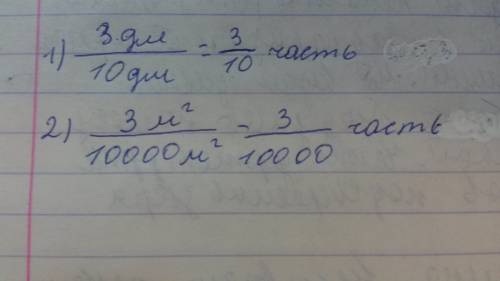 1) 3 дм / 10 дм = 3/10 часть
2) 3 м² / 10000 м² = 3/10000 часть